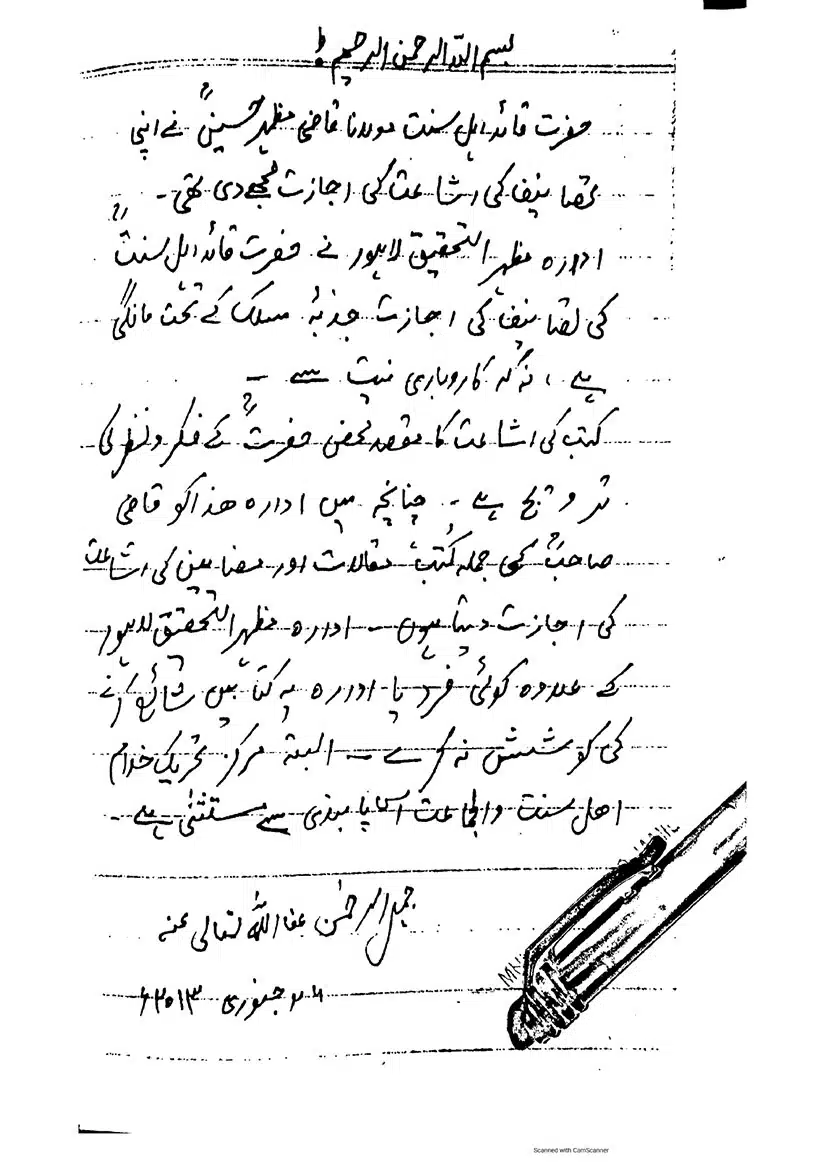 بسم اللہ الرحمن الرحیم!
حضرت قائد اہل سنت مولانا قاضی مظہر حسینؒ نے اپنی
تصانیف کی اشاعت کی اجازت مجھے دی تھی۔
ادارہ مظہر التحقیق لاہور نے حضرت قائد اہل سنتؒ
کی تصانیف کی اجازت جذبۂ مسلک کے تحت مانگی
ہے، نہ کہ کاروباری نیت سے۔
کتب کی اشاعت کا مقصد محض حضرتؒ کے فکر و نظر کی
ترویج ہے۔ چنانچہ میں ادارہ ھذا کو قاضی
صاحبؒ کی جملہ کُتب، مقالات اور مضامین کی اشاعت
کی اجازت دیتا ہوں۔ ادارہ مظہر التحقیق لاہور
کے علاوہ کوئی فرد یا ادارہ یہ کتابیں شائع کرنے
کی کوشش نہ کرے۔ البتہ مرکز تحریک خدام
اھل سنت والجماعت اس پابندی سے مستثنیٰ ہے۔
جمیل الرحمٰن عفا اللہ تعالی عنہ
۲۶ جنوری ۲۰۱۳ء
Scanned with CamScanner